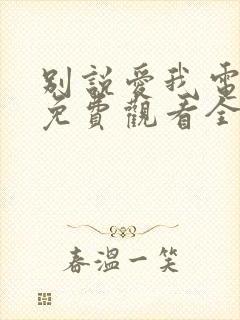 別說愛我電
免費觀看全
春溫一笑